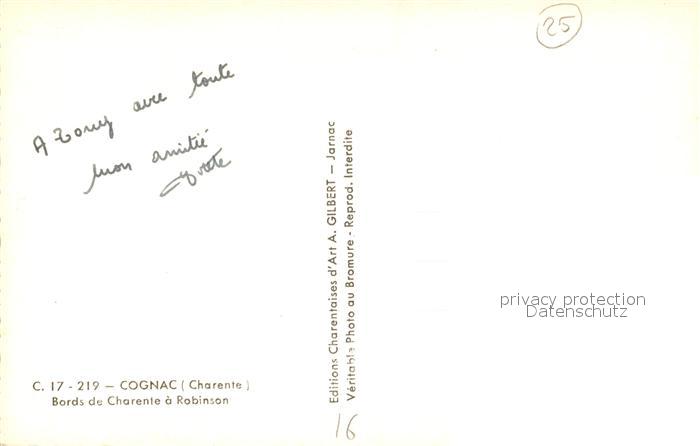 25
A Tony avec toute
mon amitié
Yvette
Editions Charentaises d'Art A. GILBERT — Jarnac
Véritable Photo au Bromure - Reprod. Interdite
privacy protection
Datenschutz
C. 17 - 219 — COGNAC ( Charente )
Bords de Charente à Robinson
16